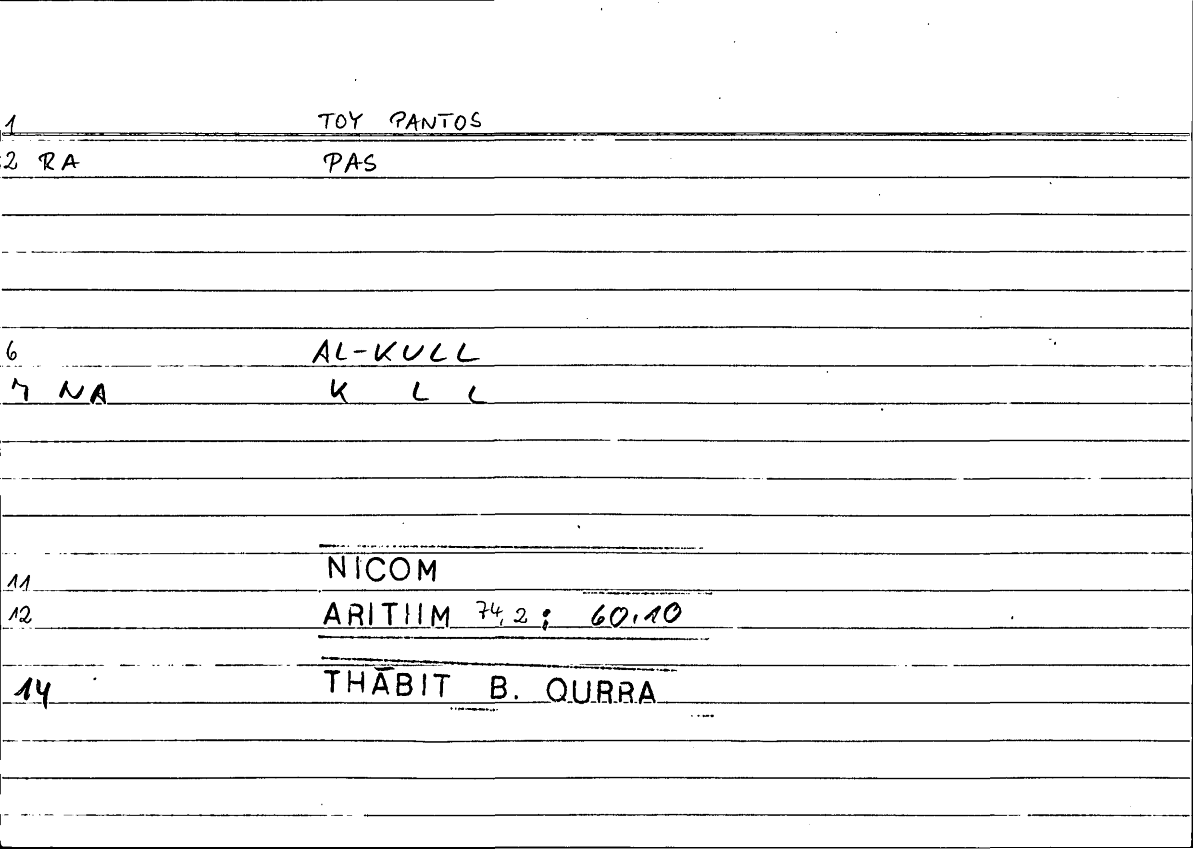 1 TOY PANTOS
2 RA PAS
6 AL-KULL
7 NA K L L
11 NICOM
12 ARITIIM 74,2 ; 60.10
14 THĀBIT B. QURRA